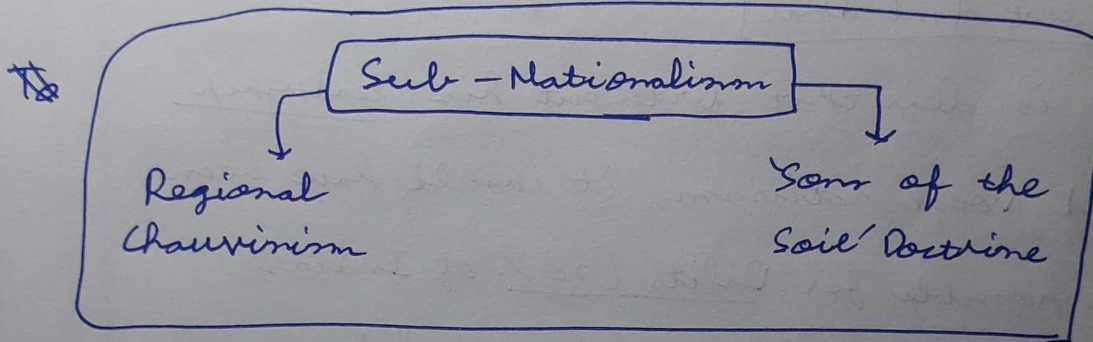 Sub-Nationalism
Regional
Chauvinism
'Sons of the
Soil' Doctrine